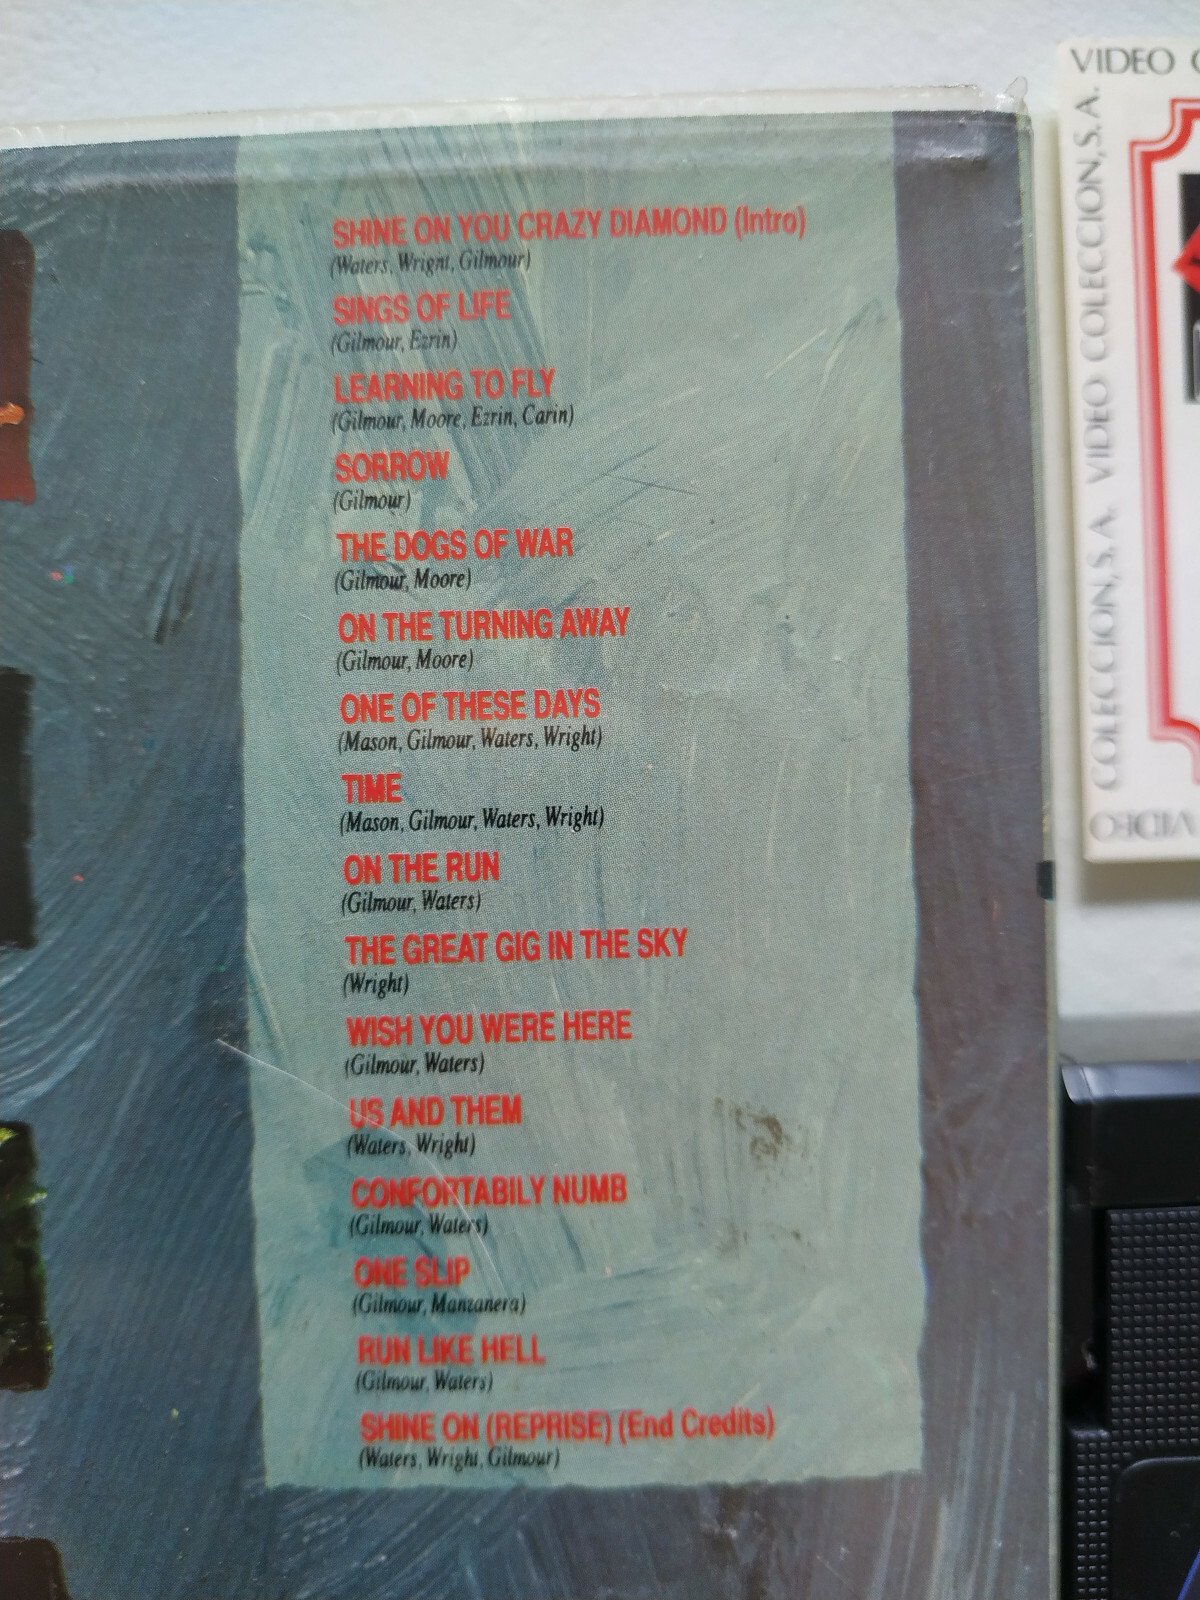 SHINE ON YOU CRAZY DIAMOND (Intro)
(Waters, Wright, Gilmour)
SINGS OF LIFE
(Gilmour, Ezrin)
LEARNING TO FLY
(Gilmour, Moore, Ezrin, Carin)
SORROW
(Gilmour)
THE DOGS OF WAR
(Gilmour, Moore)
ON THE TURNING AWAY
(Gilmour, Moore)
ONE OF THESE DAYS
(Mason, Gilmour, Waters, Wright)
TIME
(Mason, Gilmour, Waters, Wright)
ON THE RUN
(Gilmour, Waters)
THE GREAT GIG IN THE SKY
(Wright)
WISH YOU WERE HERE
(Gilmour, Waters)
US AND THEM
(Waters, Wright)
CONFORTABILY NUMB
(Gilmour, Waters)
ONE SLIP
(Gilmour, Manzanera)
RUN LIKE HELL
(Gilmour, Waters)
SHINE ON (REPRISE) (End Credits)
(Waters, Wright, Gilmour)
VIDEO
COLECCION, S.A. VIDEO COLECCION, S.A.
VIDEO